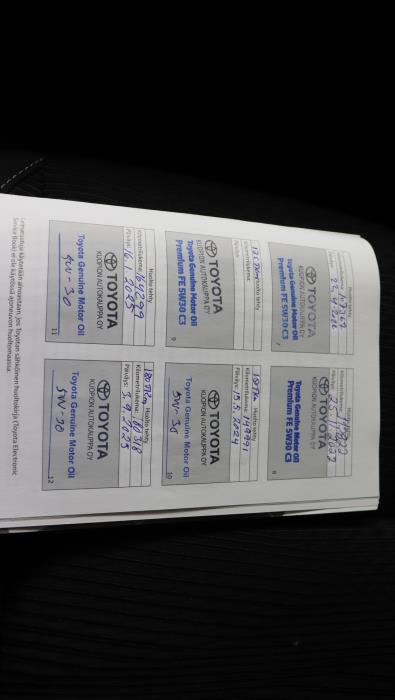 Kilometrilukema:
TOYOTA
KUOPION AUTOKAUPPA OY
Toyota Genuine Motor Oil
Premium FE 5W30 C3
7
Kilometrilukema:
Päiväys:
TOYOTA
KUOPION AUTOKAUPPA OY
Toyota Genuine Motor Oil
Premium FE 5W30 C3
8
Huolto tehty
Kilometrilukema:
Päiväys:
TOYOTA
KUOPION AUTOKAUPPA OY
Toyota Genuine Motor Oil
Premium FE 5W30 C3
9
Huolto tehty
Kilometrilukema: 149991
Päiväys: 15.5.2024
TOYOTA
KUOPION AUTOKAUPPA OY
Toyota Genuine Motor Oil
5W-30
10
Huolto tehty
Kilometrilukema: 164299
Päiväys: 16.1.2025
TOYOTA
KUOPION AUTOKAUPPA OY
Toyota Genuine Motor Oil
5W-30
11
Huolto tehty
Kilometrilukema: 180318
Päiväys: 3.9.2025
TOYOTA
KUOPION AUTOKAUPPA OY
Toyota Genuine Motor Oil
5W-30
12
Leimasivuja käytetään ainoastaan, jos Toyotan sähköinen huoltokirja (Toyota Electronic
Service Book) ei ole käytössä ajoneuvon huoltomaassa.